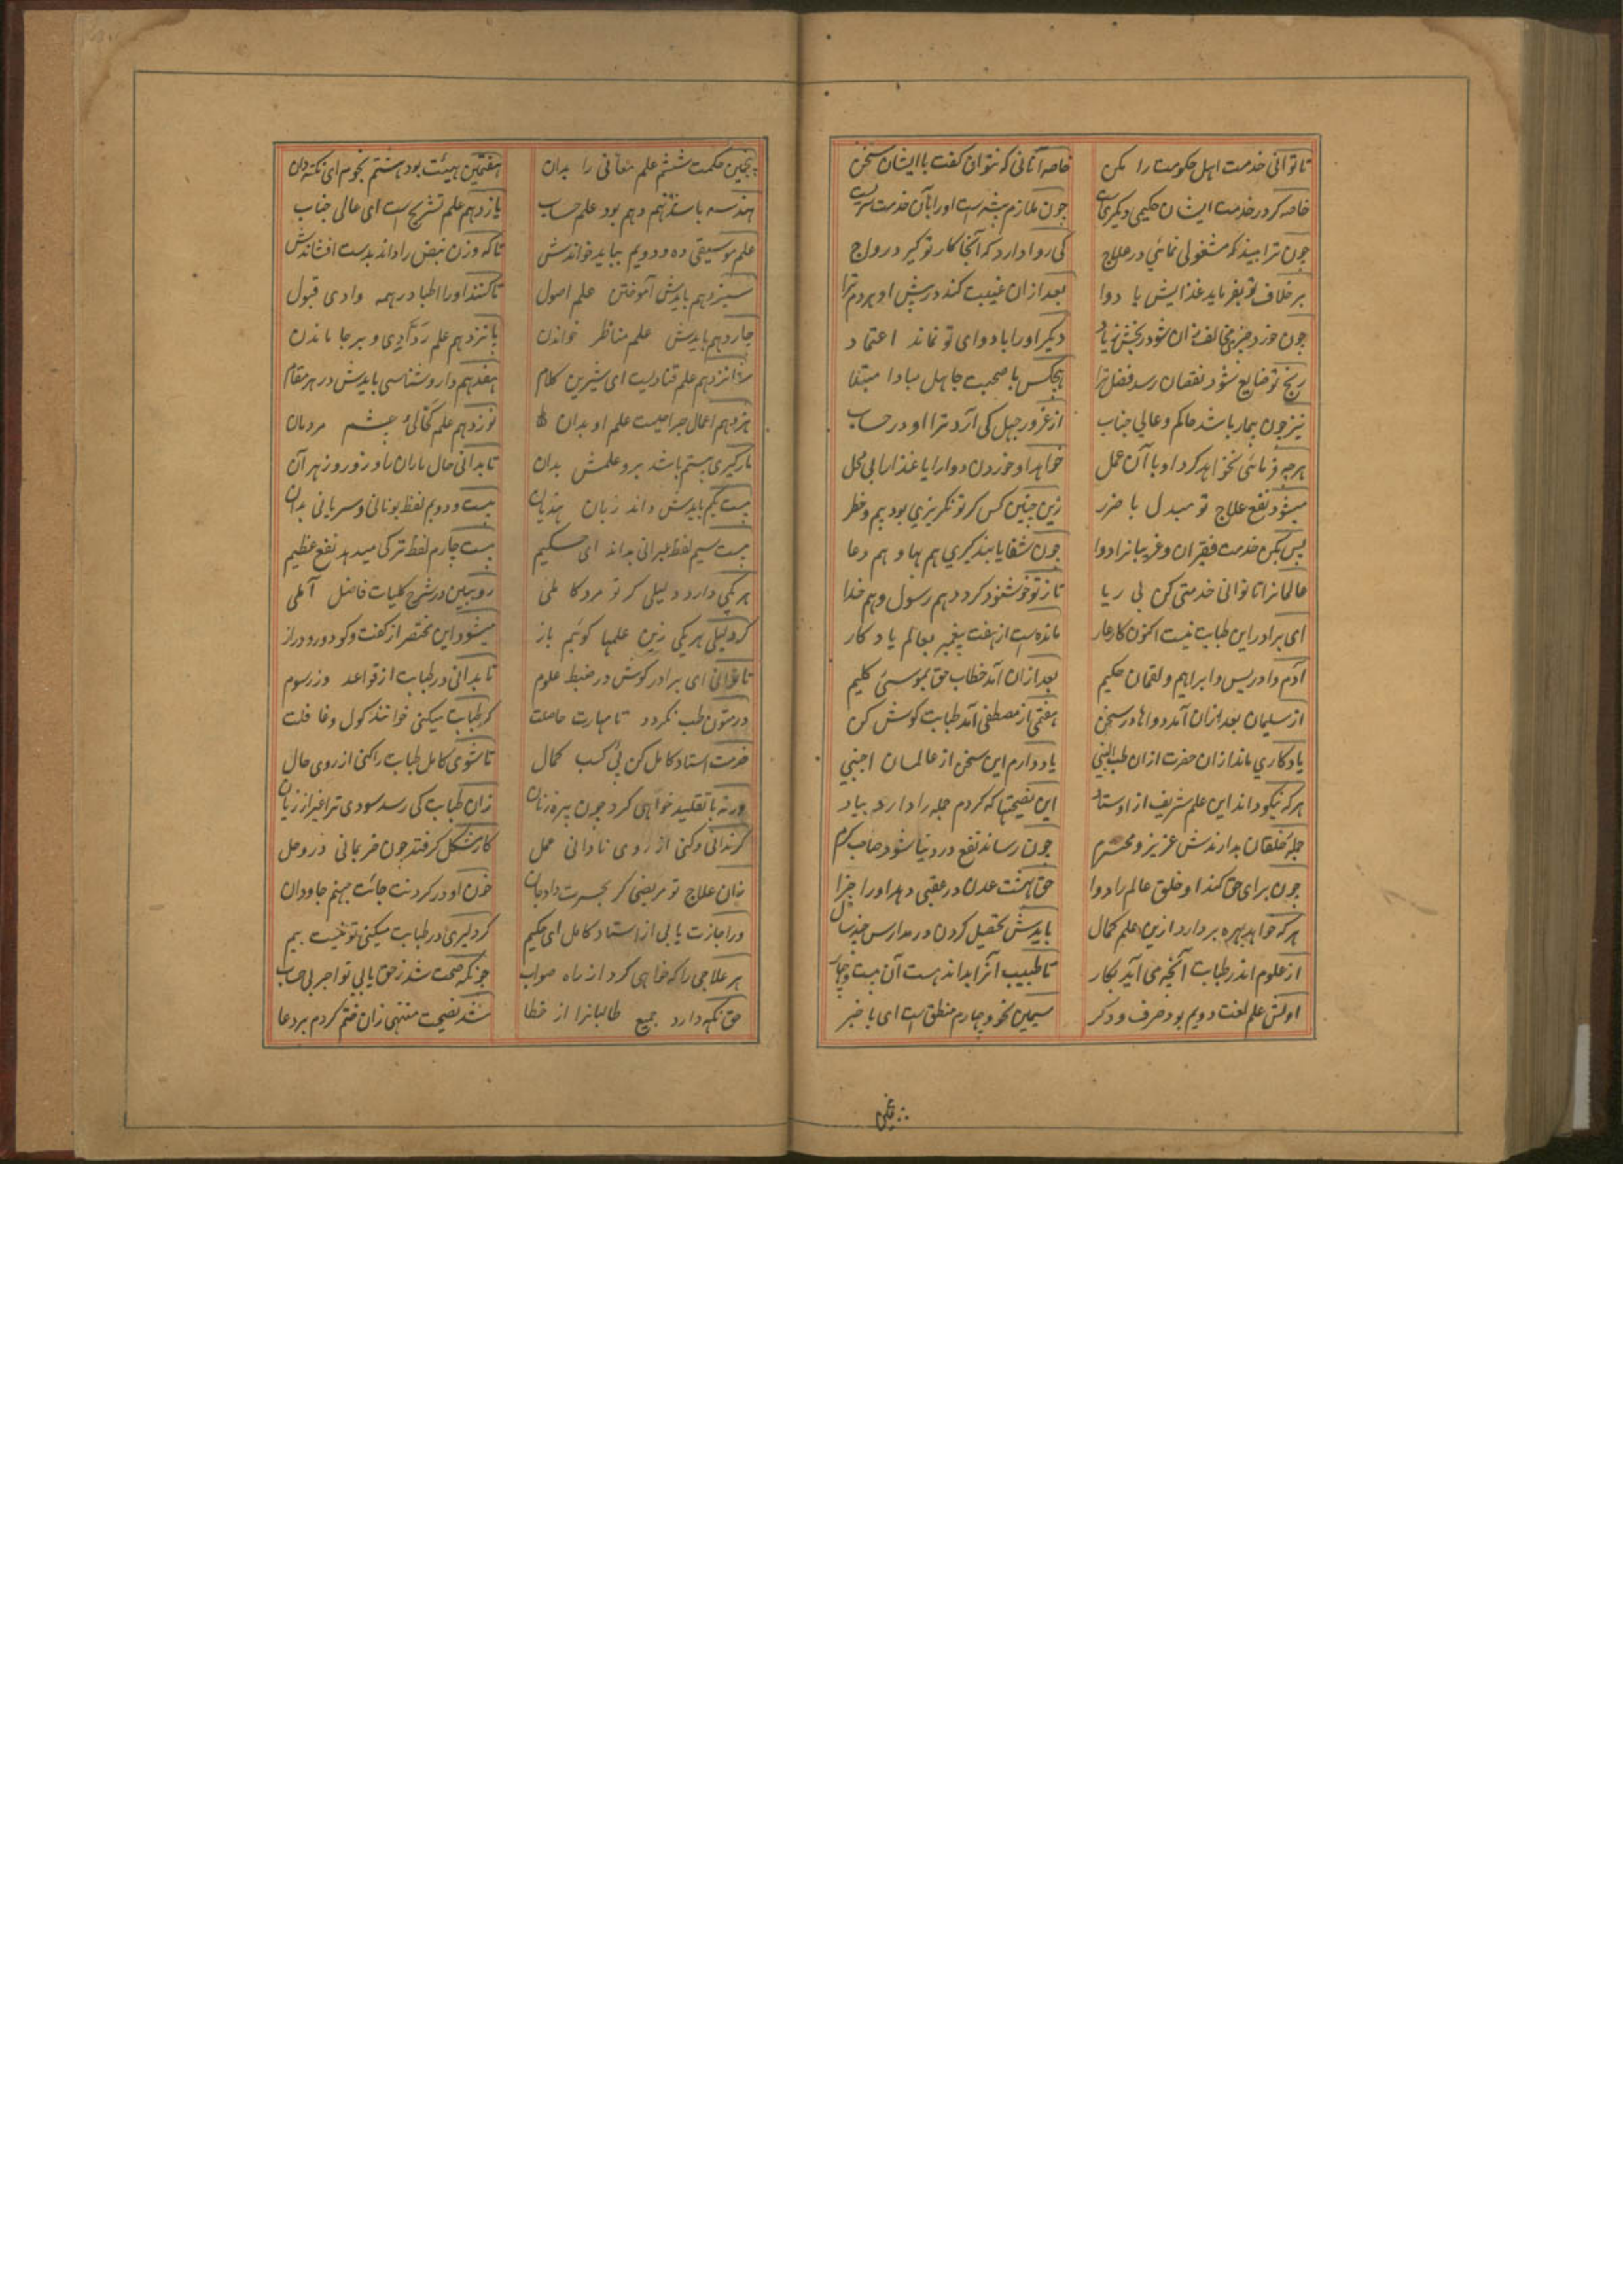 تا توانی خدمت اهل حکومت را مکن خاصه آنانی که نتوان کفت با ایشان سخن
خاصه کر در خدمت ایشان حکیمی دیکری است چون ملازم بیشتر است او را بآن خدمت
چون ترا بیند که مشغولی نمائی در علاج کی روا دارد که آنجا کار تو کیرد رواج
بر خلاف تو بفرماید غذایش یا دوا بعد ازان غیبت کند در پیش او هر دم ترا
چون خورد چیزی مخالف زان شود رنجش زیاد دیکر او را با دوای تو نماند اعتماد
رنج تو ضایع شود نقصان رسد فضل ترا هیچکس با صحبت جاهل مبادا مبتلا
نیز چون بیمار باشد حاکم و عالی جناب از غرور جهل کی آرد ترا او در حساب
هرچه فرمائی نخواهد کرد او با آن عمل خواهد او خوردن دوا را یا غذا را بی محل
میشود نفع علاج تو مبدل با ضرر زین چنین کس کر تو نکریزی بود بیم و خطر
پس بکن خدمت فقیران و غریبانرا دوا چون شفا یابند کیری هم بها و هم دعا
عالمانرا تا توانی خدمتی کن بی ریا تا ز تو خوشنود کردد هم رسول و هم خدا
ای برادر این طبابت نیست اکنون کار عار مانده است از هفت پیغمبر بعالم یادکار
آدم و ادریس و ابراهیم و لقمان حکیم بعد ازان آمد خطاب حق بموسی کلیم
از سلیمان بعد ازان آمد دواها در سخن هفتمی از مصطفی آمد طبابت کوش کن
یادکاری ماند ازان حضرت ازان طب النبی یاد دارم این سخن از عالمان اجنبی
هر که نیکو داند این علم شریف از اوستاد این نصیحتها که کردم جمله را دارد بیاد
جمله خلقان بدارندش عزیز و محترم چون رساند نفع در دنیا شود صاحب کرم
چون برای حق کند او خلق عالم را دوا حق بهشت عدن در عقبی دهد او را جزا
هر که خواهد بهره بردارد ازین علم کمال بایدش تحصیل کردن در مدارس چند سال
از علوم اندر طبابت آنچه می آید بکار تا طبیب آنرا بداند هست آن بیست و چهار
اولش علم لغت دویم بود صرف و دکر سیمین نحو و چهارم منطق است ای با خبر
پنجمین حکمت ششم علم معانی را بدان هفتمین هیئت بود هشتم نجوم ای نکته دان
هندسه باشد نهم دهم بود علم حساب یازدهم علم تشریح است ای عالی جناب
علم موسیقی ده و دویم بباید خواندنش تا که وزن نبض را داند بدست افشاندنش
سیزدهم بایدش آموختن علم اصول تا کنند او را اطبا در همه وادی قبول
چاردهم بایدش علم مناظر خواندن پانزدهم علم و بر جا ماندن
شانزدهم علم قنادیست ای شیرین کلام هفدهم دارو شناسی بایدش در هر مقام
هژدهم اعمال جراحیست علم او بدان نوزدهم علم کحالی چشم مردمان
مارکیری بیستم باشد برو علمش بدان تا بدانی حال ماران را و زور و زهر آن
بیست یکم بایدش داند زبان هندیان بیست و دویم لفظ یونانی و سریانی بدان
بیست سیم لفظ عبرانی بداند ای حکیم بیست چارم لفظ ترکی میدهد نفع عظیم
هر یکی دارد دلیلی کر تو مرد کاملی رو ببین در شرح کلیات فاضل آملی
کر دلیل هر یکی زین علمها کوئیم باز میشود این مختصر از کفت و کو دور و دراز
تا توانی ای برادر کوش در ضبط علوم تا بدانی در طبابت از قواعد وز رسوم
در متون طب نکردد تا مهارت حاصلت کر طبابت میکنی خوانند کول و غافلت
خدمت استاد کامل کن پی کسب کمال تا شوی کامل طبابت را کنی از روی حال
ورنه با تقلید خواهی کرد چون پیره زنان زان طبابت کی رسد سودی ترا غیر از زیان
کر ندانی و کنی از روی نادانی عمل کار مشکل کرفتد چون خر بمانی در وحل
زان علاج تو مریضی کر بحسرت داد جان خون او در کردنت جائت جهنم جاودان
ور اجازت یابی از استاد کامل ای حکیم کر دلیری در طبابت میکنی تو نیست بیم
هر علاجی را که خواهی کرد از راه صواب چونکه صحت شد ز حق یابی تو اجر بی حساب
حق نکه دارد جمیع طالبانرا از خطا شد نصیحت منتهی زان ختم کردم بر دعا